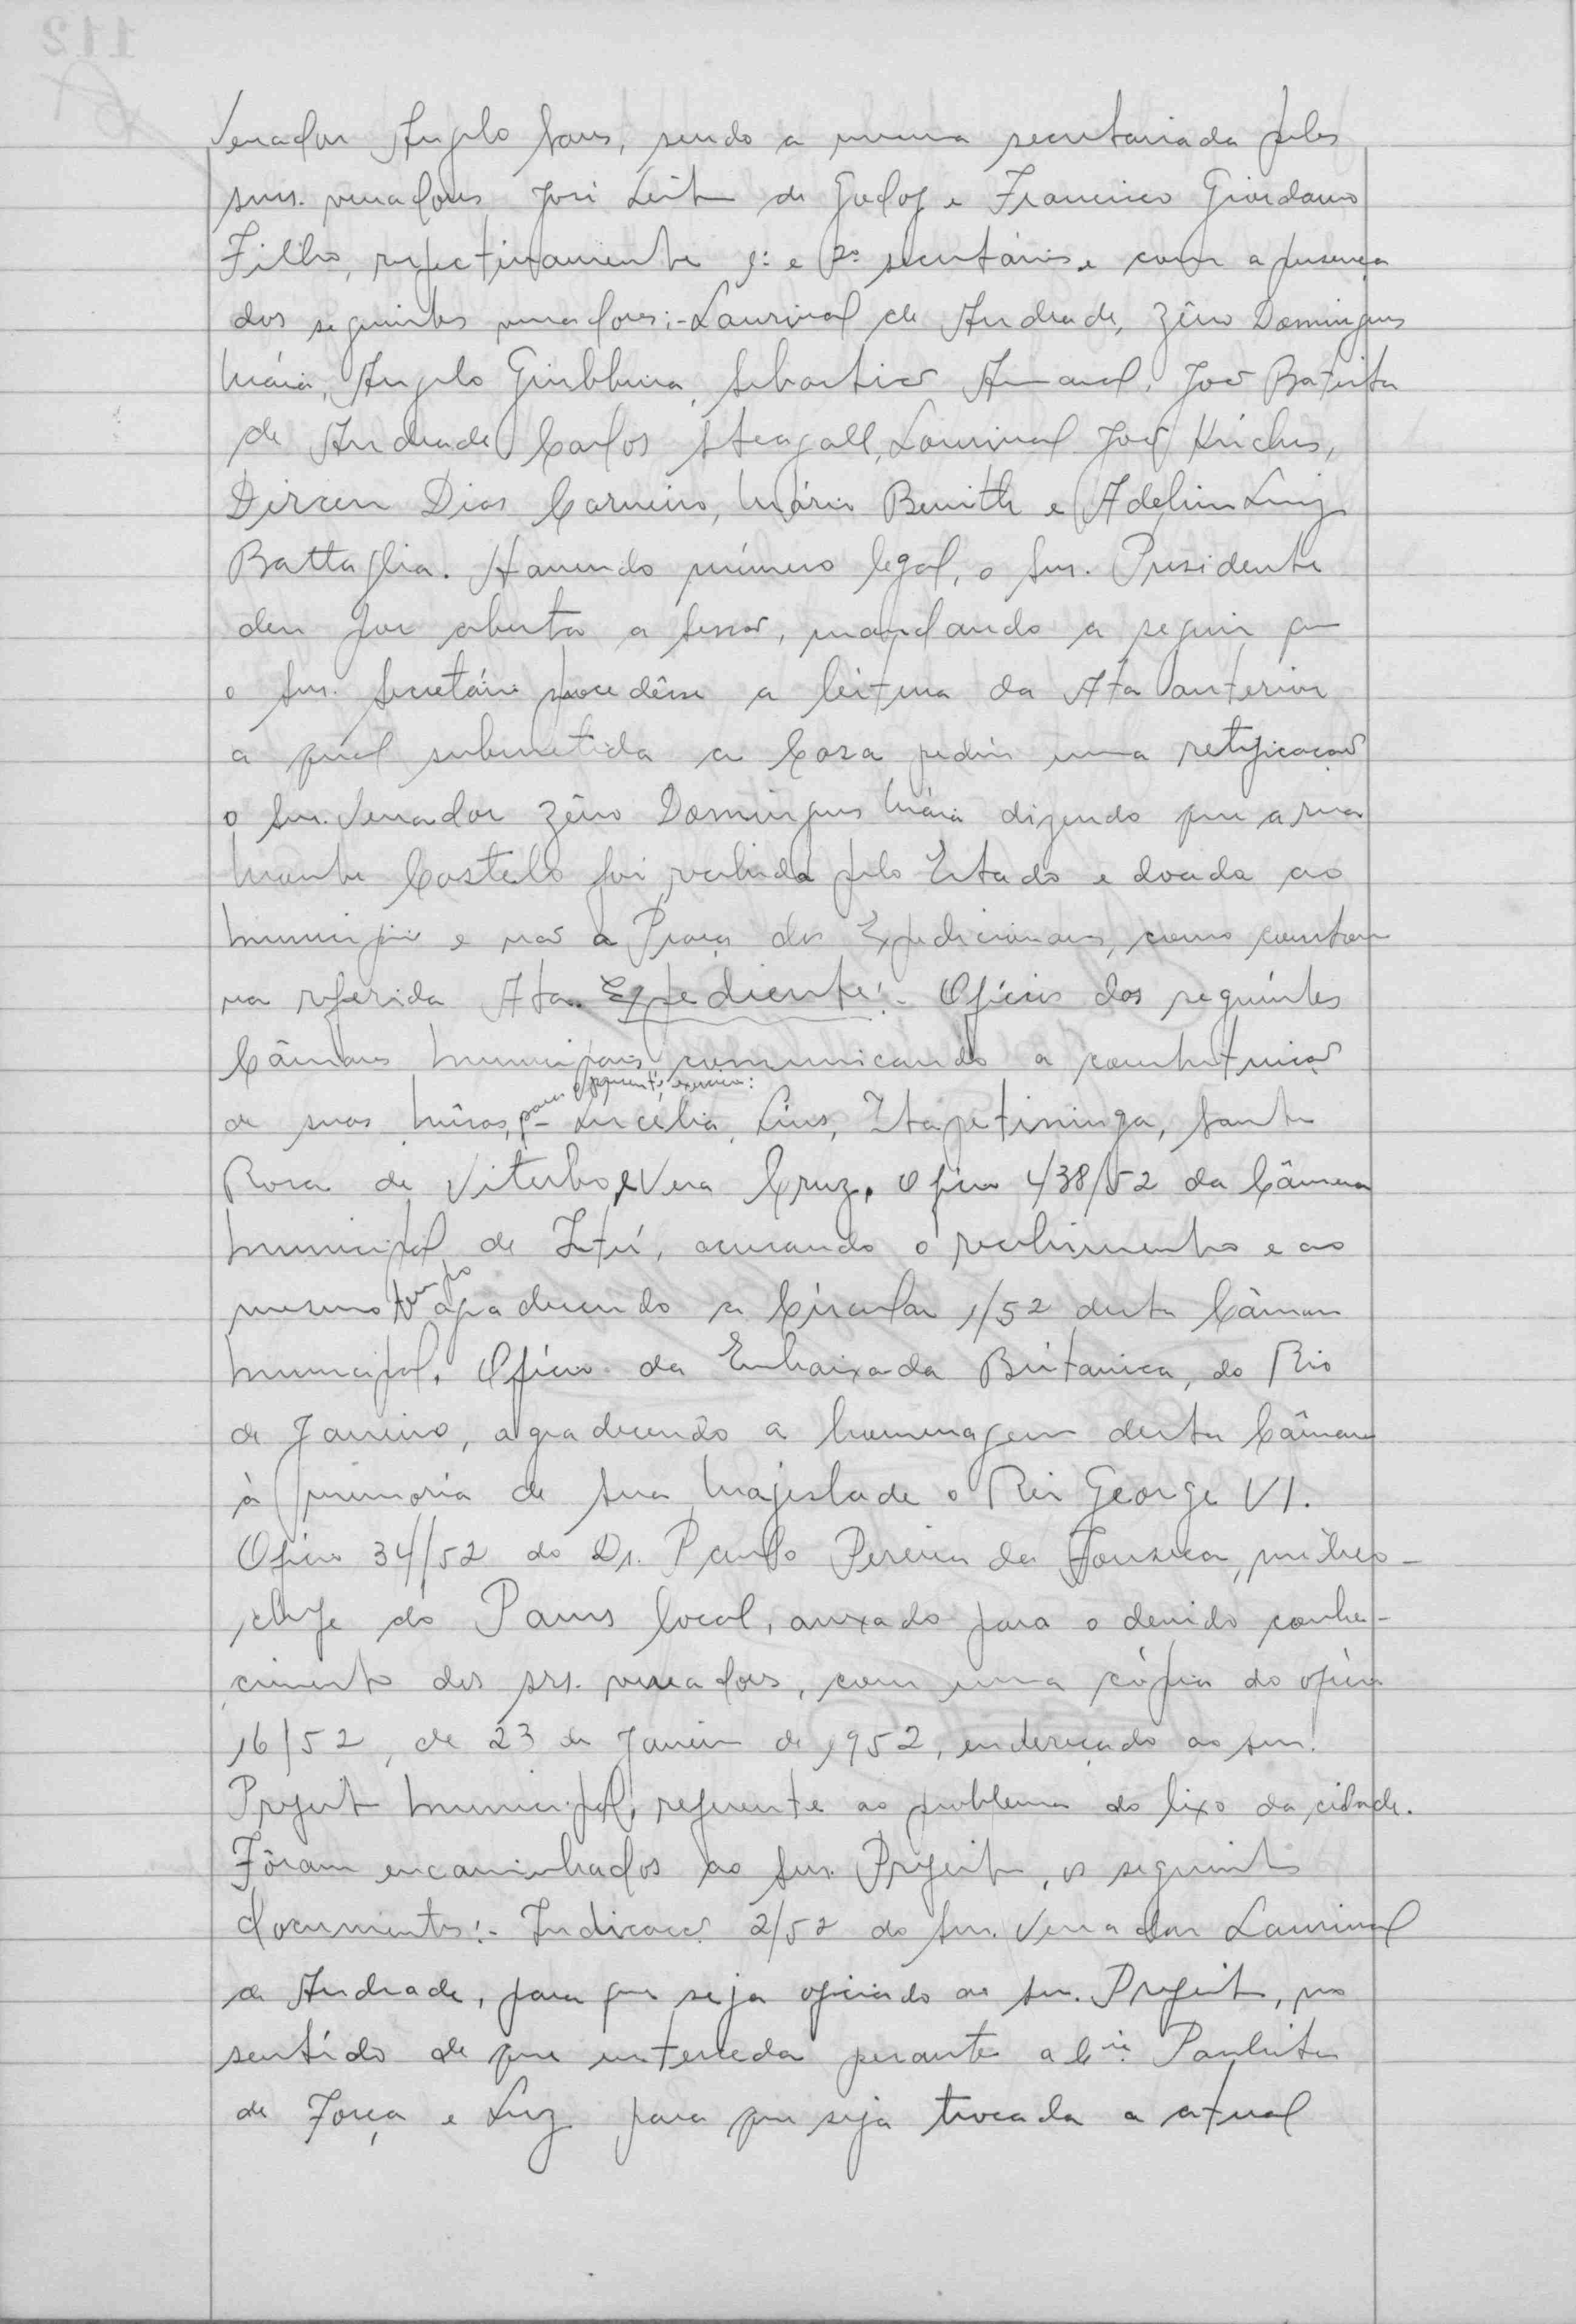 Vereador Angelo Sans, sendo a mesma secretariada pelos
snrs. vereadores José Leite de Godoy e Francisco Giordano
Filho, respectivamente 1º e 2º secretários e com a presença
dos seguintes vereadores:- Laurival de Andrade, Zêno Domingues
Máia, Angelo, Sebastião Amaral, João Batista
de Andrade Carlos Steagall, Lourival José Kriches,
Dirceu Dias Carneiro, Mário Benith e Adelino Luiz
Battaglia. Havendo número legal, o Snr. Presidente
deu por aberta a sessão, mandando a seguir que
o Snr. Secretário procedêsse a leitura da Ata anterior
a qual submetida a Casa pediu uma retificação
o Snr. Vereador Zêno Domingues Máia dizendo que a rua
Monte Castelo foi recebida pelo Estado e doada ao
Municipio e não a Praça dos Expedicionarios, como constou
na referida Ata. Expediente:- Oficios das seguintes
Câmaras Municipais comunicando a constituição
para o presente exercicio:
de suas Mêsas,:- Lucélia, Lins, Itapetininga, Santa
Rosa de Viterbo, e Vera Cruz. Oficio 438/52 da Câmara
Municipal de Itú, acusando o recebimento e ao
mesmo tempo agradecendo a Circular 1/52 desta Câmara
Municipal. Oficio da Embaixada Britanica, do Rio
de Janeiro, agradecendo a homenagem desta Câmara
à memória de Sua Majestade o Rei George VI.
Oficio 34/52 do Dr. Paulo Pereira da Fonseca, médico-
chefe do Pams local, anexado para o devido conhe-
cimento dos srs. vereadores, com uma cópia do oficio
16/52, de 23 de Janeiro de 1952, endereçado ao snr.
Prefeito Municipal, referente ao problema do lixo da cidade.
Fôram encaminhados ao Snr. Prefeito, os seguintes
documentos:- Indicação 2/52 do Snr. Vereador Laurival
de Andrade, para que seja oficiado ao Snr. Prefeito, no
sentido de que interceda perante a Cia. Paulista
de Força e Luz para que seja trocada a atual
112